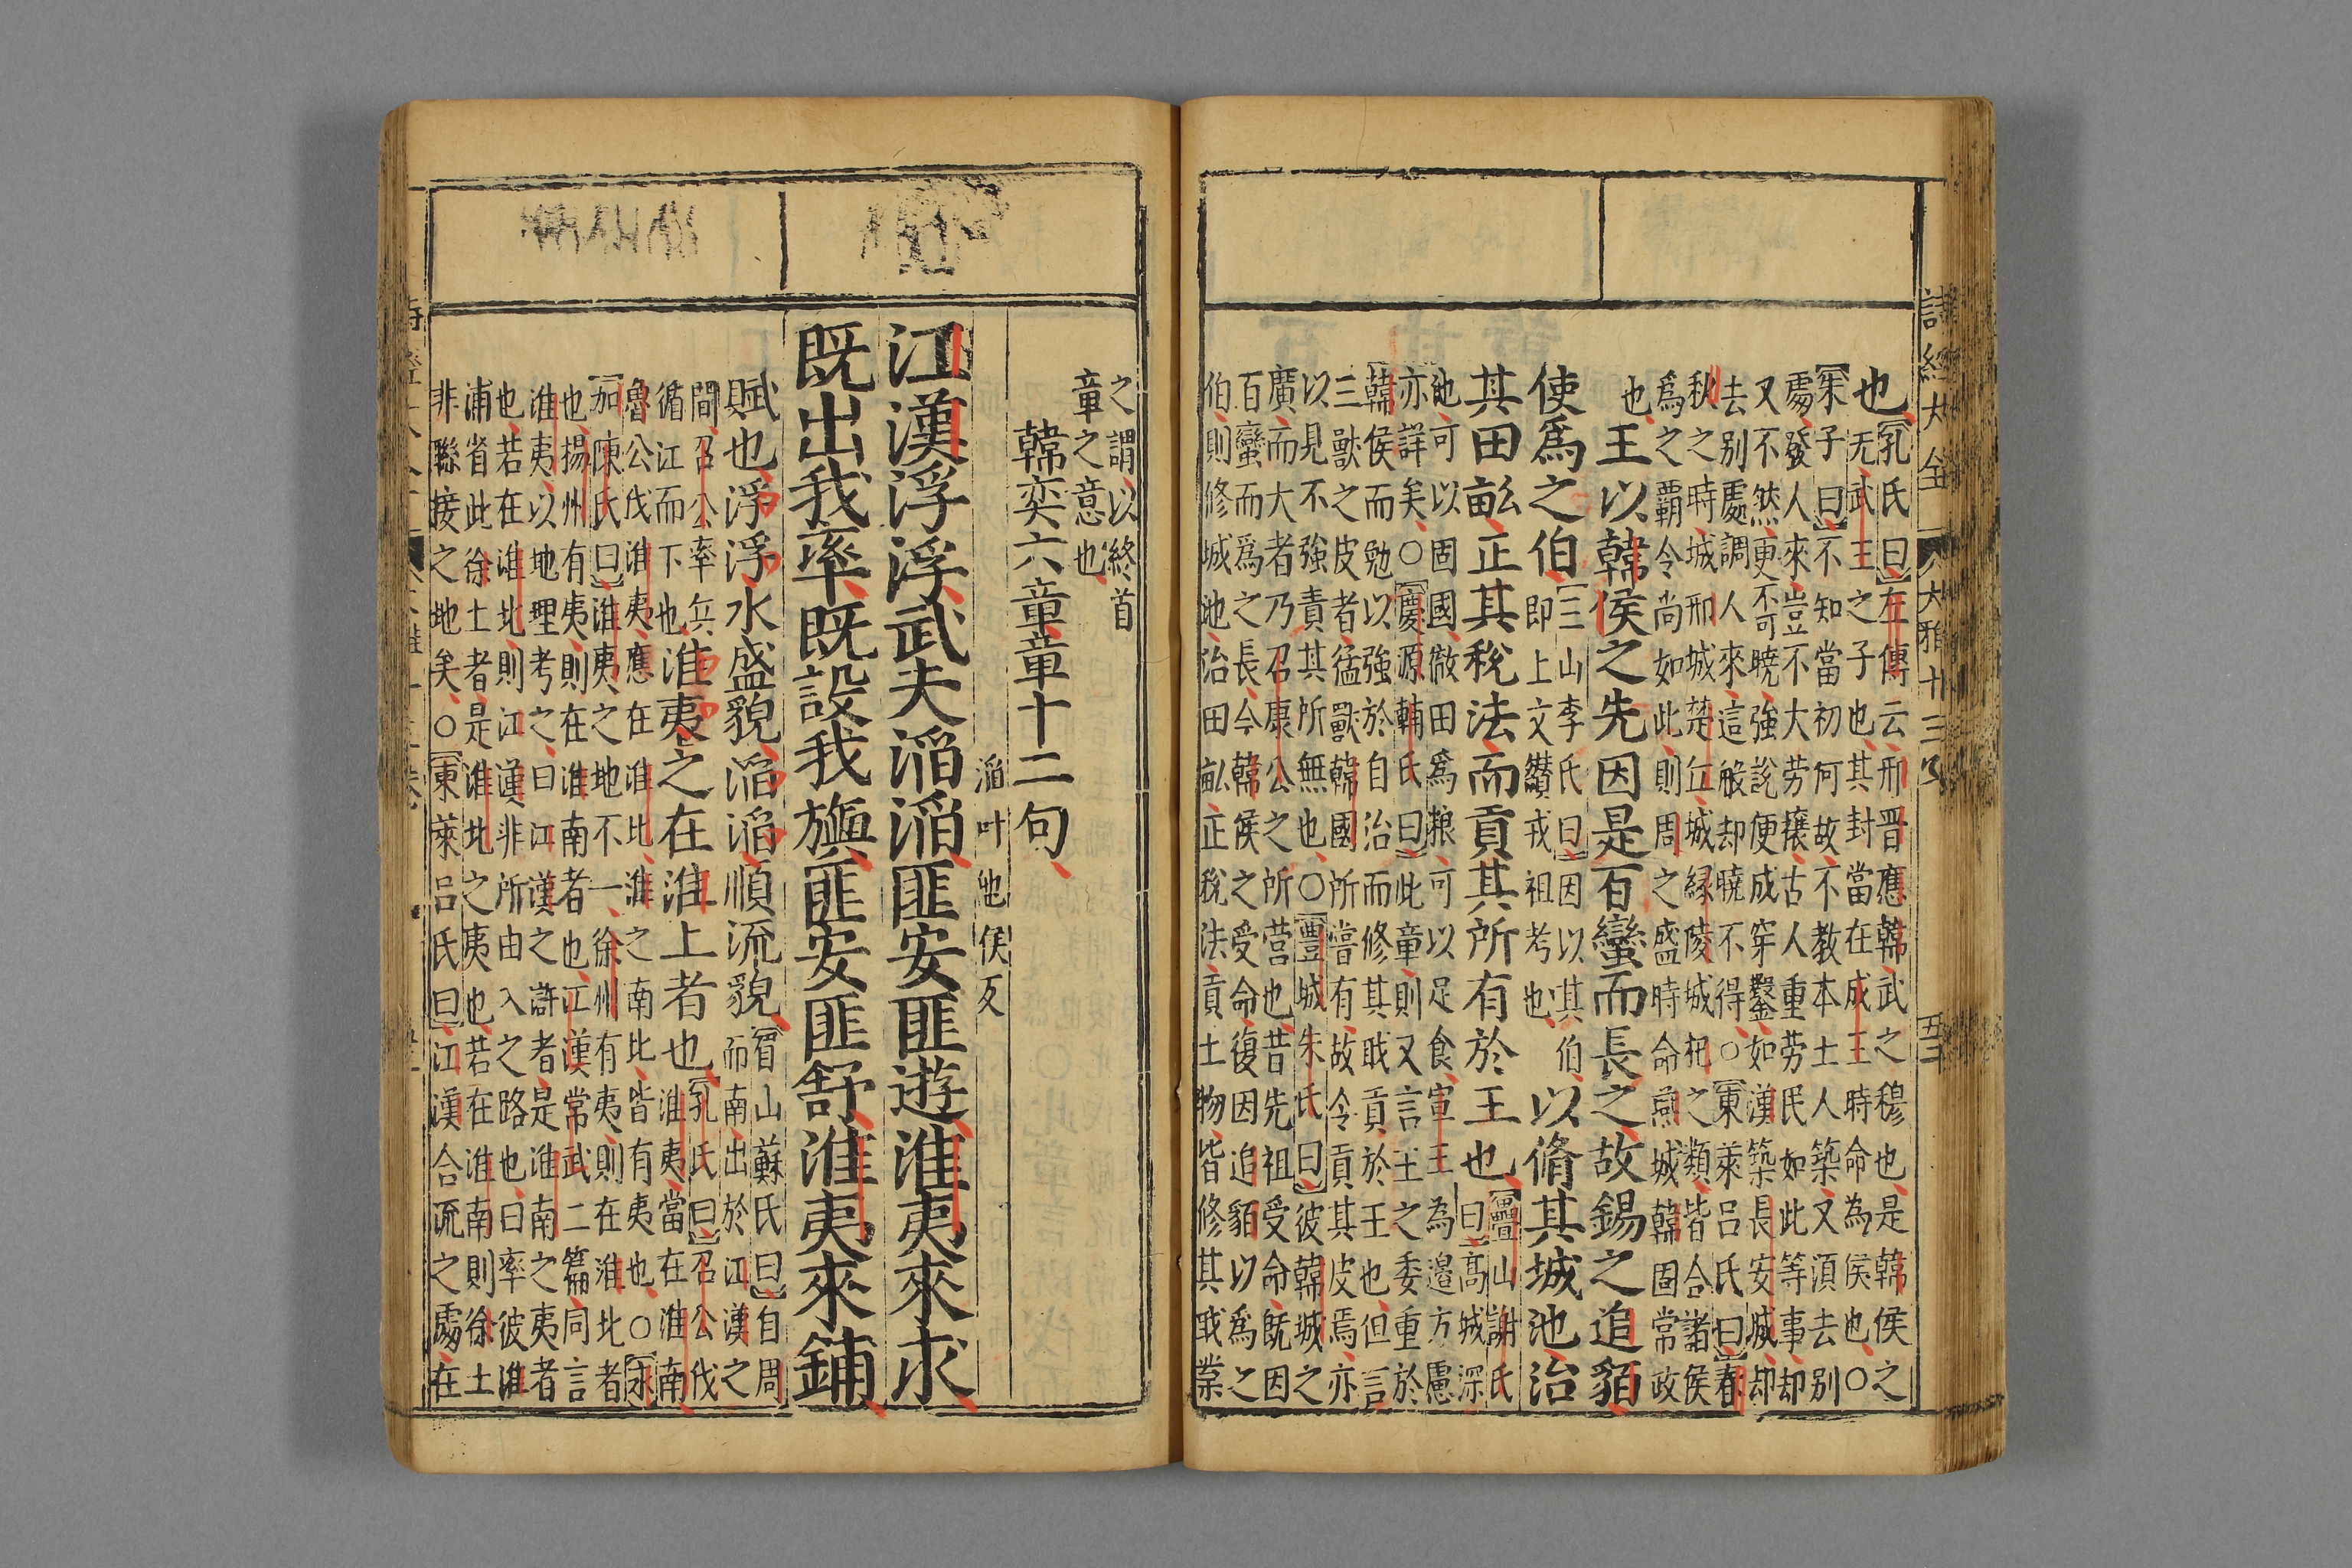 詩經大全
大雅十三
也
孔氏曰左傳云邢晋應韓武之穆也是韓侯之
先武王之子也其封當在成王時命為侯也○
朱子曰不知當初何故不教本土人築又須去别
處發人來豈不大劳攘古人重劳民如此等事却
又不然更不可曉強說便成穿鑿如漢築長安城却
去别處調人來這般却曉不得○東萊吕氏曰春
秋之時城邢城楚丘城緣陵城杞之類皆合諸侯
爲之覇令尚如此則周之盛時命燕城韓固常政
也
王以韓侯之先因是百蠻而長之故錫之追貊
使爲之伯
三山李氏曰因以其伯
即上文纘戎祖考也
以脩其城池治
其田畝正其稅法而貢其所有於王也
疊山謝氏
曰高城深
池可以固國徹田爲粮可以足食宣王為邉方慮
亦詳矣○慶源輔氏曰此章則又言王之委重於
韓侯而勉以強於自治而修其戢貢於王也但言
三獸之皮者猛獸韓國所嘗有故令貢其皮焉亦
以見不強責其所無也○豐城朱氏曰彼韓城之
廣而大者乃召康公之所营也昔先祖受命既因
百蠻而爲之長今韓侯之受命復因追貊以爲之
伯則修城池治田畝正稅法貢土物皆修其戢業
之謂以終首
章之意也
韓奕六章章十二句
滔叶他侯反
江漢浮浮武夫滔滔匪安匪遊淮夷來求
既出我車既設我旟匪安匪舒淮夷來鋪
賦也浮浮水盛貌滔滔順流貌
眉山蘇氏曰自周
而南出於江漢之
間召公率兵
循江而下也
淮夷之在淮上者也
孔氏曰召公伐
淮夷當在淮南
魯公伐淮夷應在淮北淮之南北皆有夷也○永
加陳氏曰淮夷之地不一徐州有夷則在淮北者
也揚州有夷則在淮南者也江漢常武二篇同言
淮夷以地理考之曰江漢之滸者是淮南之夷者
也若在淮北則江漢非所由入之路也曰率彼淮
浦省此徐土者是淮北之夷也若在淮南則徐土
非聯接之地矣○東萊吕氏曰江漢合流之處在